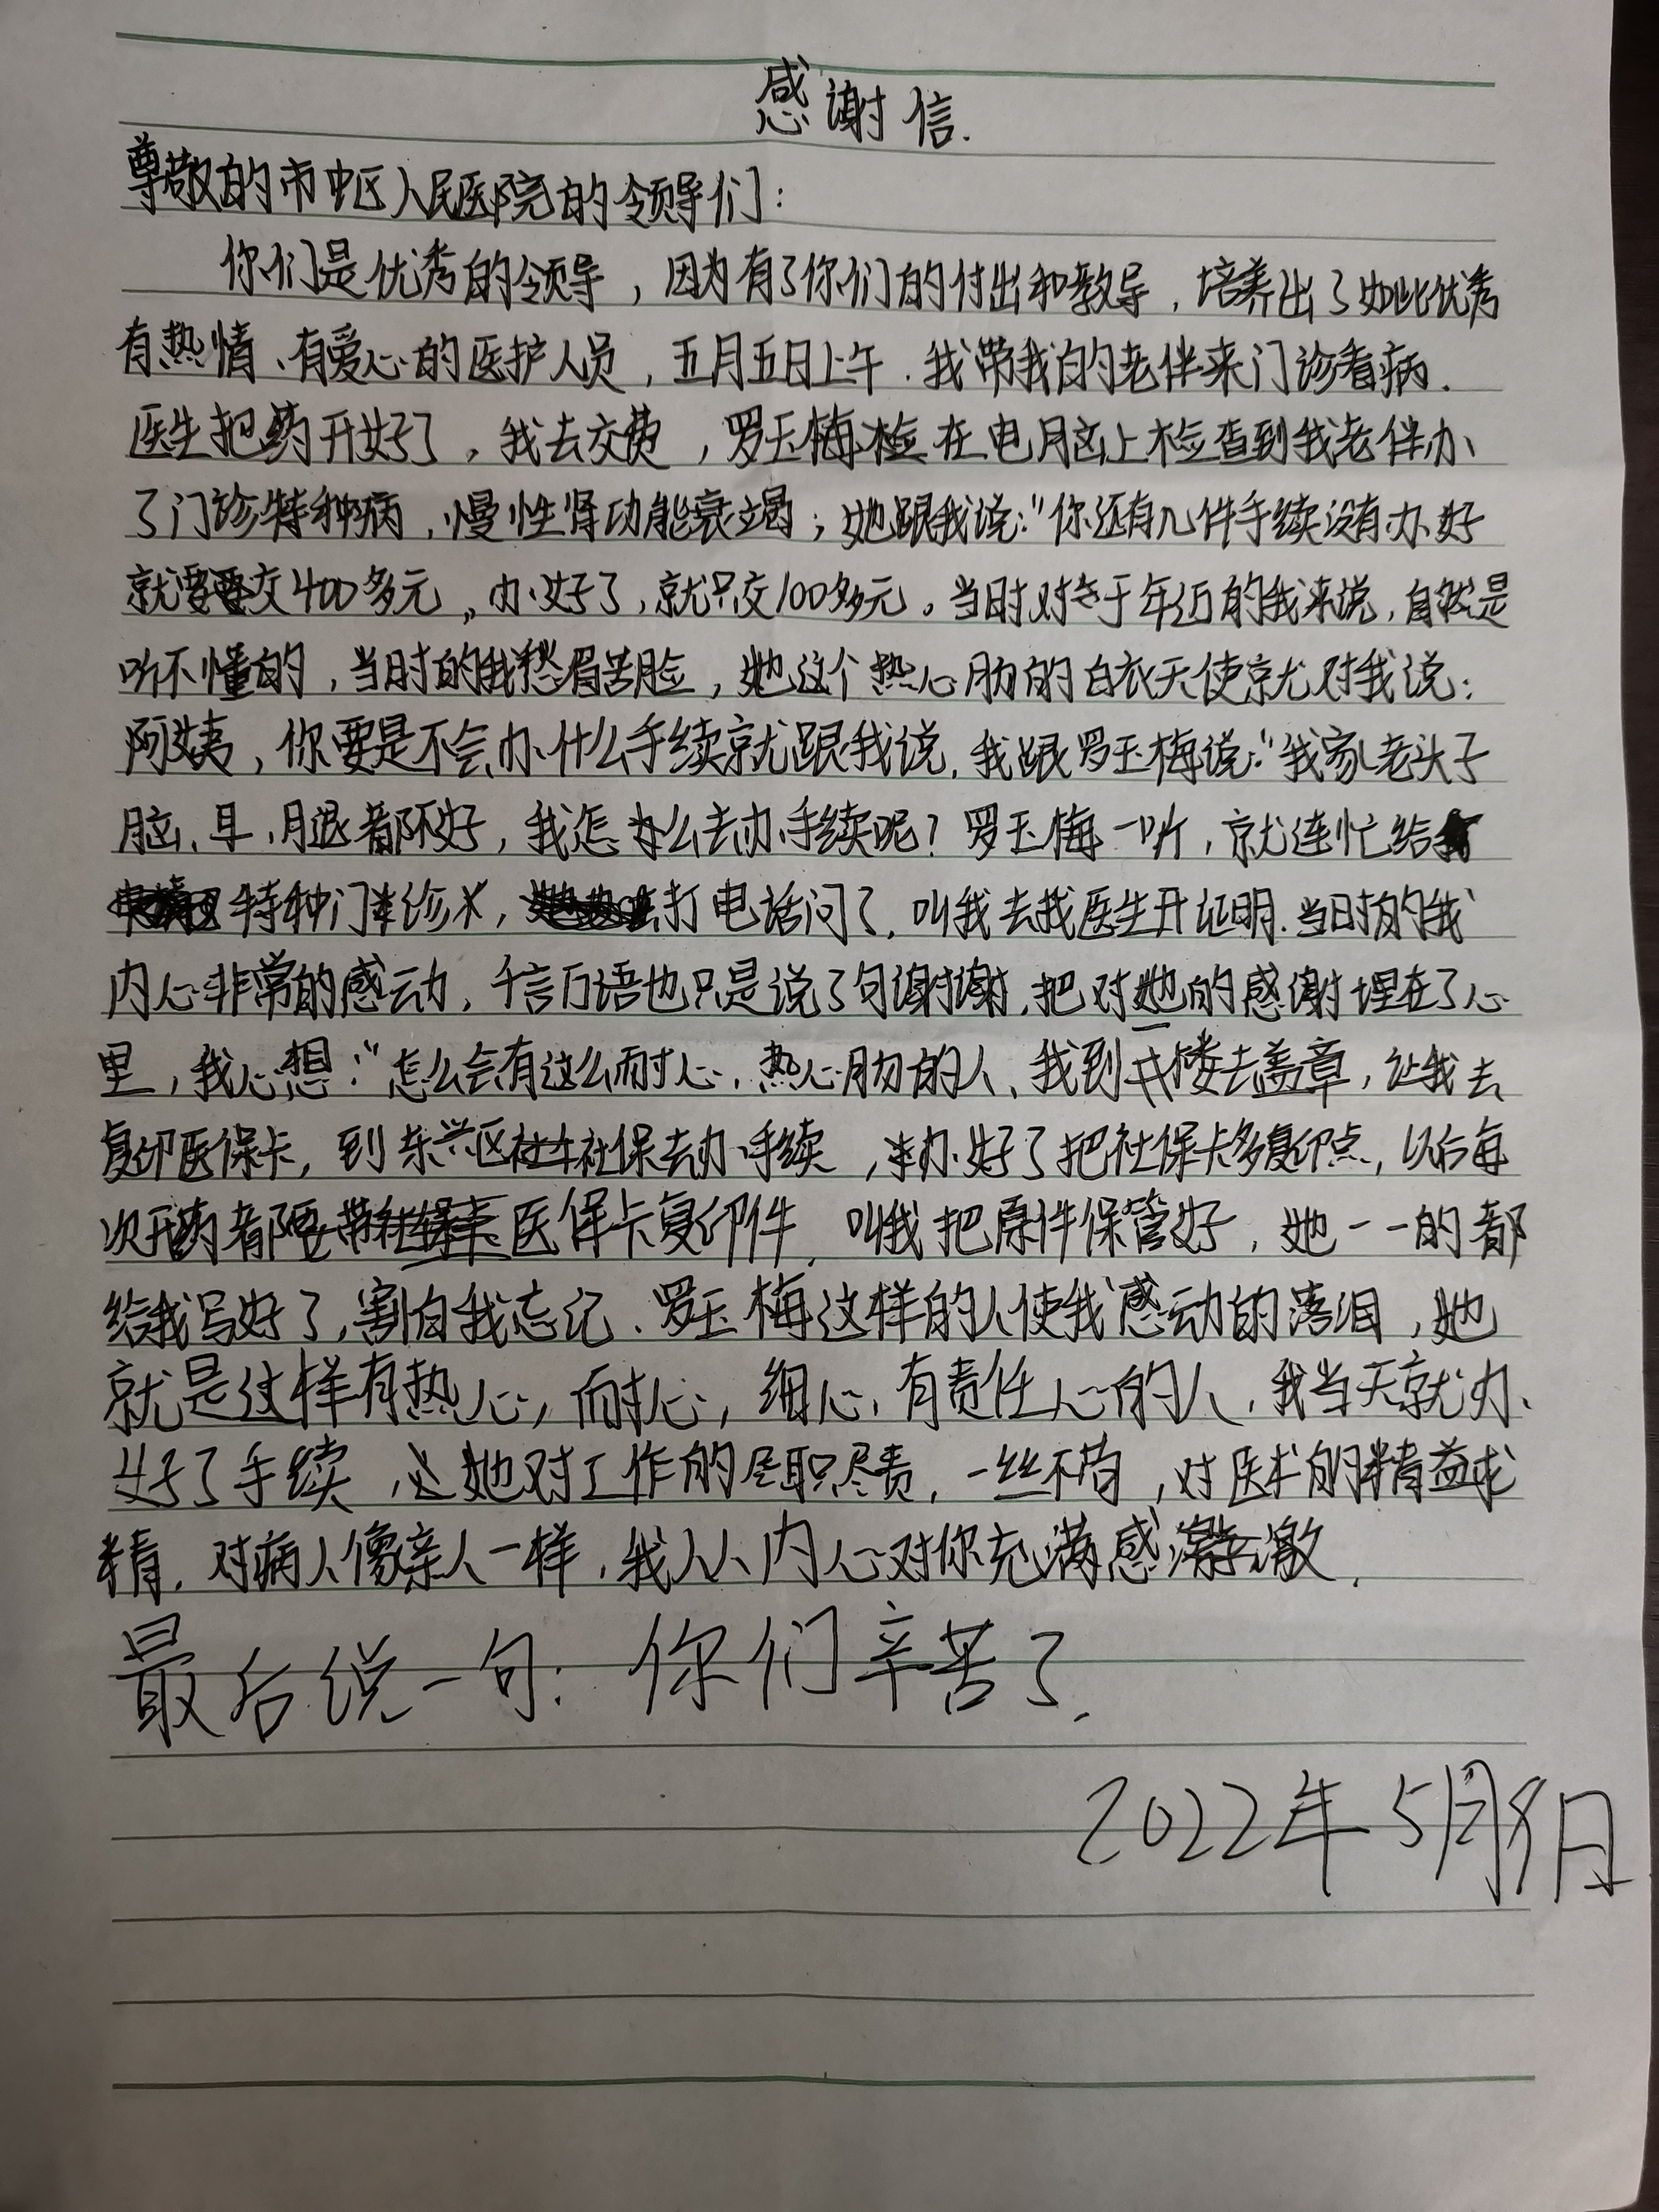 感谢信.
尊敬的市中区人民医院的领导们:
你们是优秀的领导,因为有了你们的付出和教导,培养出了如此优秀
有热情、有爱心的医护人员,五月五日上午.我带我的老伴来门诊看病.
医生把药开好了,我去交费,罗玉梅在电脑上检查到我老伴办
了门诊特种病,慢性肾功能衰竭;她跟我说:"你还有几件手续没有办好
就要交400多元,,办好了,就只交100多元。当时对于年迈的我来说,自然是
听不懂的,当时的我愁眉苦脸,她这个热心肠的白衣天使就对我说:
阿姨,你要是不会办什么手续就跟我说,我跟罗玉梅说:"我家老头子
脑、耳、腿都不好,我怎么去办手续呢?罗玉梅一听,就连忙给
特种门诊,打电话问了,叫我去找医生开证明.当时的我
内心非常的感动,千言万语也只是说了句谢谢,把对她的感谢埋在了心
里,我心想:"怎么会有这么耐心、热心肠的人、我到楼去盖章,让我去
复印医保卡,到东兴区社保去办手续,办好了把社保卡多复印点,以后每
次开药都要带医保卡复印件,叫我把原件保管好,她一一的都
给我写好了,害怕我忘记.罗玉梅这样的人使我感动的落泪,她
就是这样有热心,耐心,细心,有责任心的人,我当天就办
好了手续,她对工作的尽职尽责,一丝不苟,对医术的精益求
精.对病人像亲人一样,我从内心对你充满感激.
最后说一句:你们辛苦了.
2022年5月8日